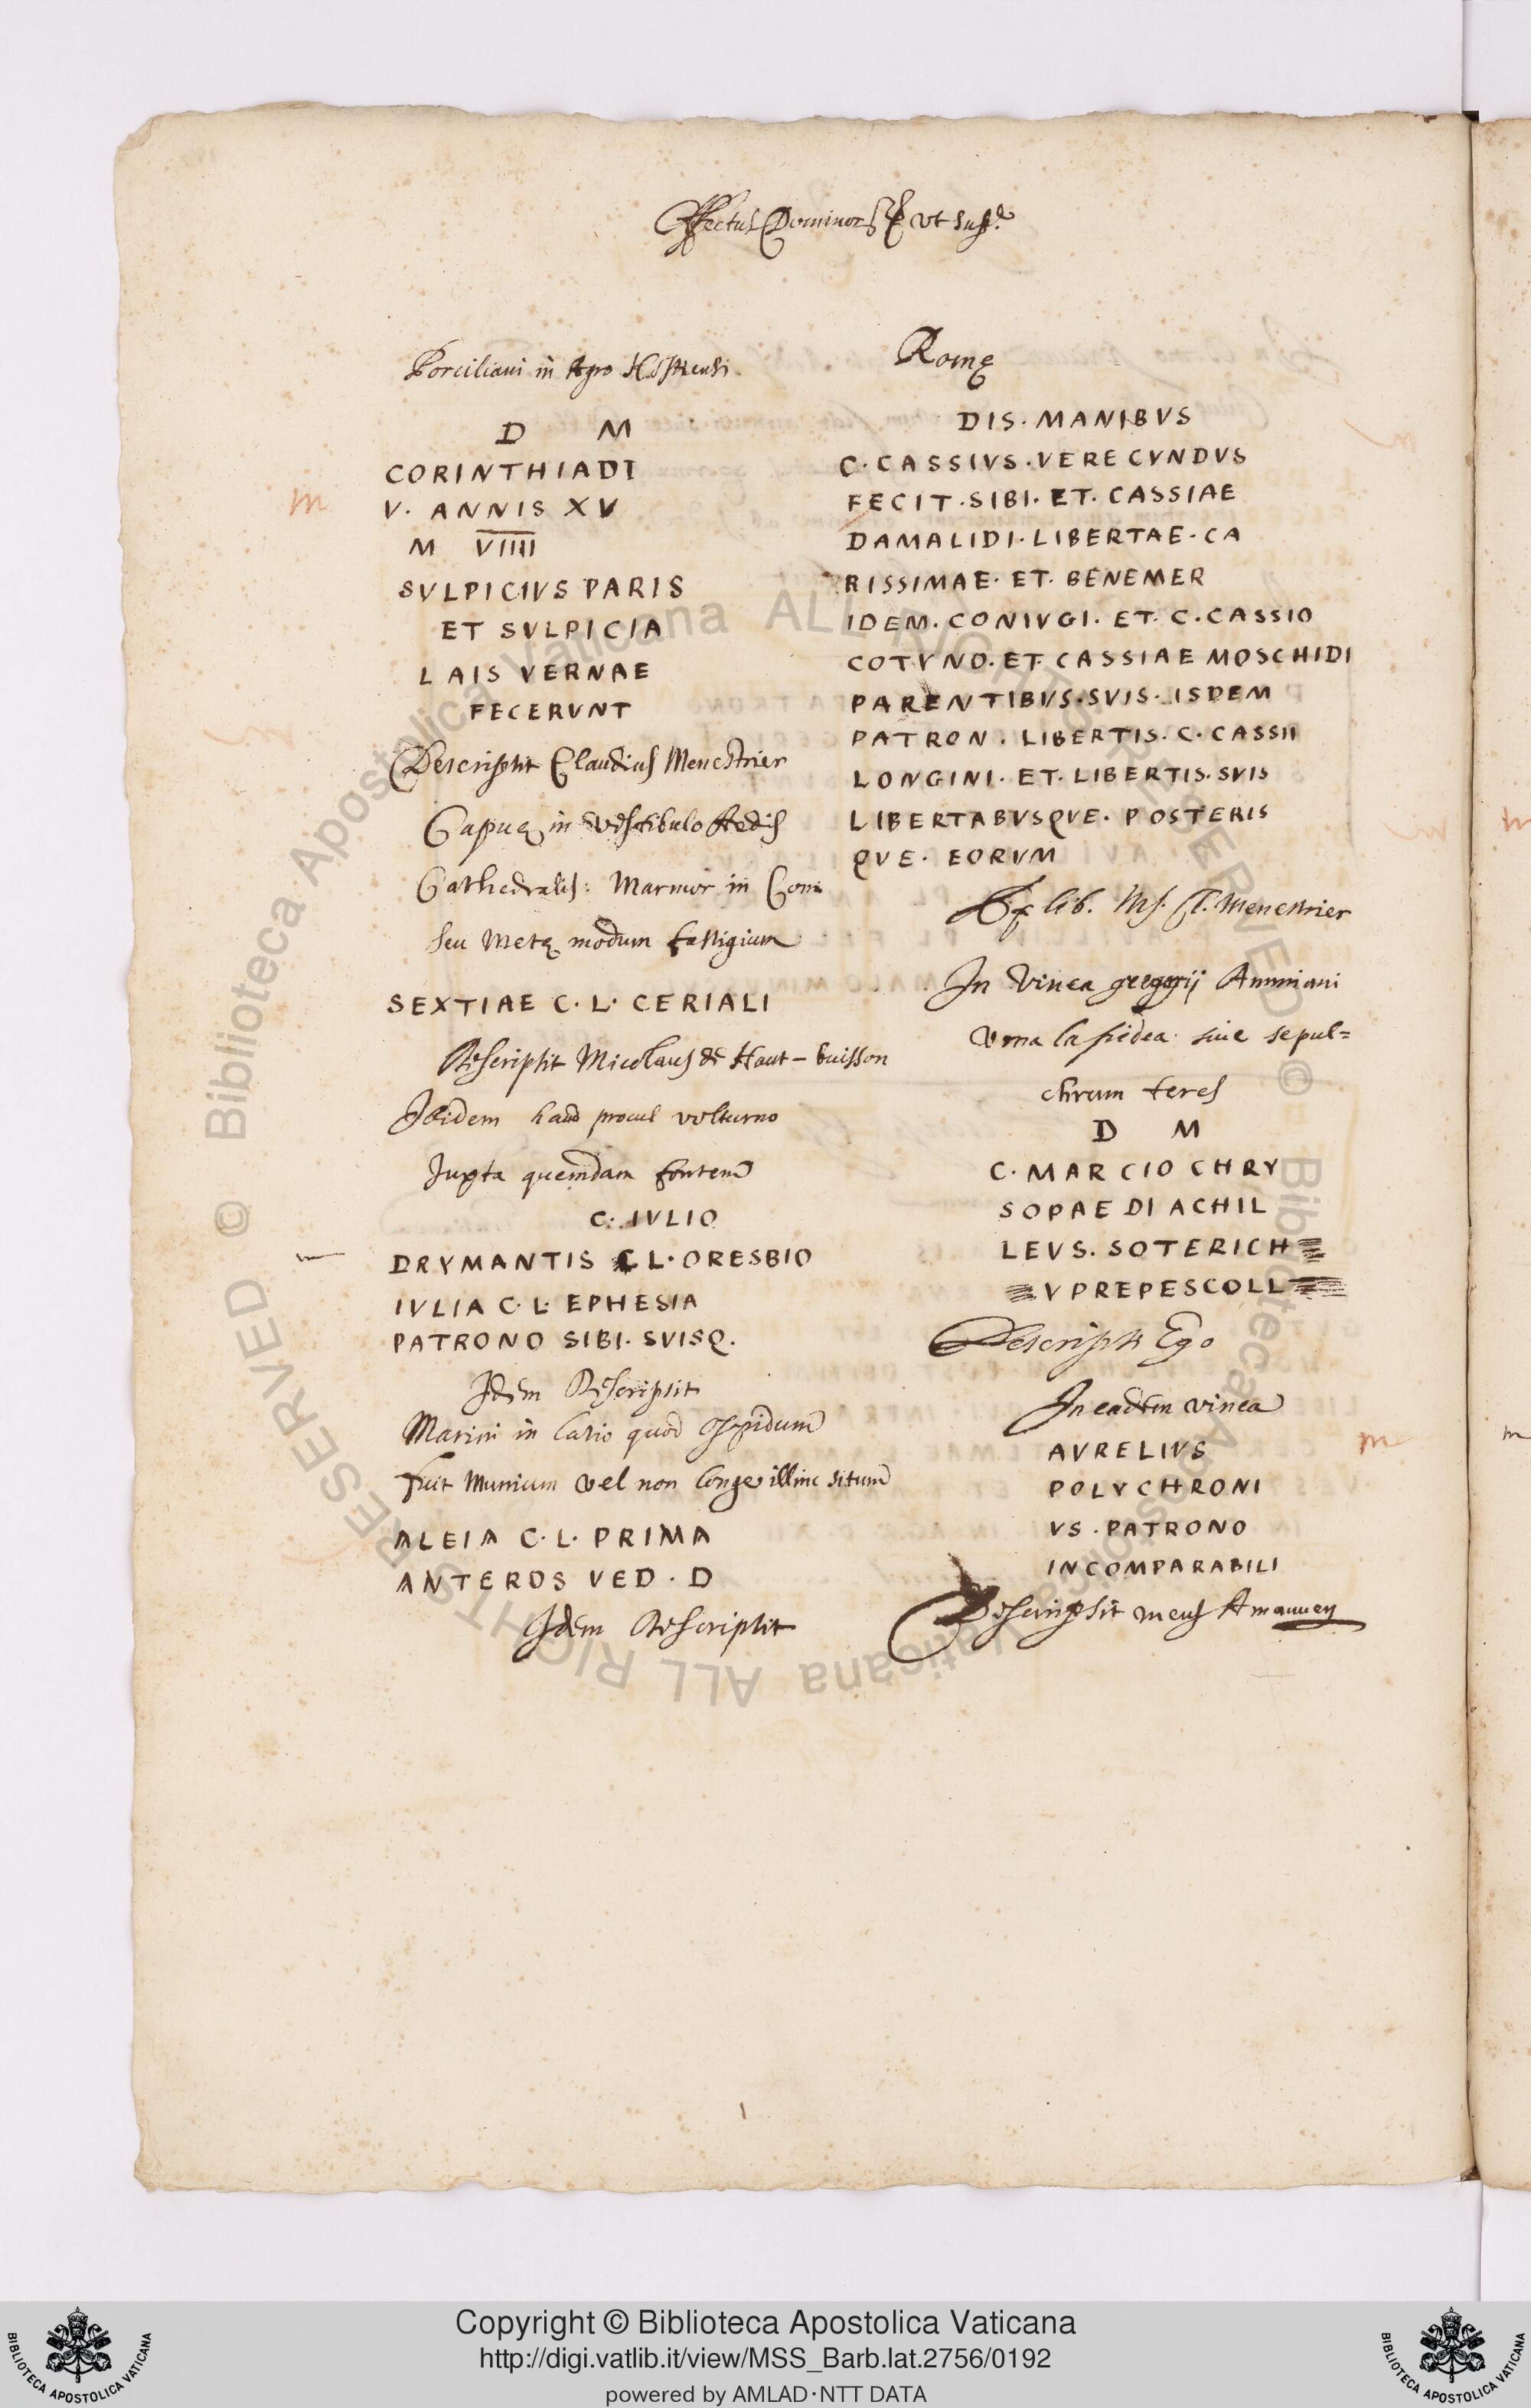 Affectus Dominor. & vt sup.ᵃ
Porciliani in Agro Hostiensi.
D M
CORINTHIADI
V. ANNIS XV
M VIIII
SVLPICIVS PARIS
ET SVLPICIA
LAIS VERNAE
FECERVNT
Descripsit Claudius Menestrier
Capuę in Vestibulo Aedis
Cathedralis: Marmor in Coni
seu Metę modum fastigium
SEXTIAE C. L. CERIALI
Descripsit Nicolaus de Haut-buisson
Ibidem haud procul volturno
Juxta quemdam fontem
C. IVLIO
DRYMANTIS C L. ORESBIO
IVLIA C. L. EPHESIA
PATRONO SIBI. SVISQ.
Idem Descripsit
Marini in Latio quod oppidum
fuit Munium vel non longe illinc situm
ALEIA C. L. PRIMA
ANTEROS VED. D
Idem Descripsit
Romę
DIS. MANIBVS
C. CASSIVS. VERECVNDVS
FECIT. SIBI. ET. CASSIAE
DAMALIDI. LIBERTAE. CA
RISSIMAE. ET. BENEMER
IDEM. CONIVGI. ET. C. CASSIO
COTVNO. ET. CASSIAE MOSCHIDI
PARENTIBVS. SVIS. ISDEM
PATRON. LIBERTIS. C. CASSII
LONGINI. ET. LIBERTIS. SVIS
LIBERTABVSQVE. POSTERIS
QVE. EORVM
Ex lib. Ms. Cl. Menestrier
In Vinea gregorij Ammiani
Vrna lapidea siue sepul=
chrum teres
D M
C. MARCIO CHRY
SOPAEDI ACHIL
LEVS. SOTERICH
VPREPESCOLL
Descripsi Ego
In eadem vinea
AVRELIVS
POLYCHRONI
VS. PATRONO
INCOMPARABILI
Descripsit meus Amanuen
m
m
Copyright © Biblioteca Apostolica Vaticana
http://digi.vatlib.it/view/MSS_Barb.lat.2756/0192
powered by AMLAD·NTT DATA
BIBLIOTECA APOSTOLICA VATICANA
BIBLIOTECA APOSTOLICA VATICANA
© Biblioteca Apostolica Vaticana ALL RIGHTS RESERVED © Biblioteca Apostolica Vaticana ALL RIGHTS RESERVED